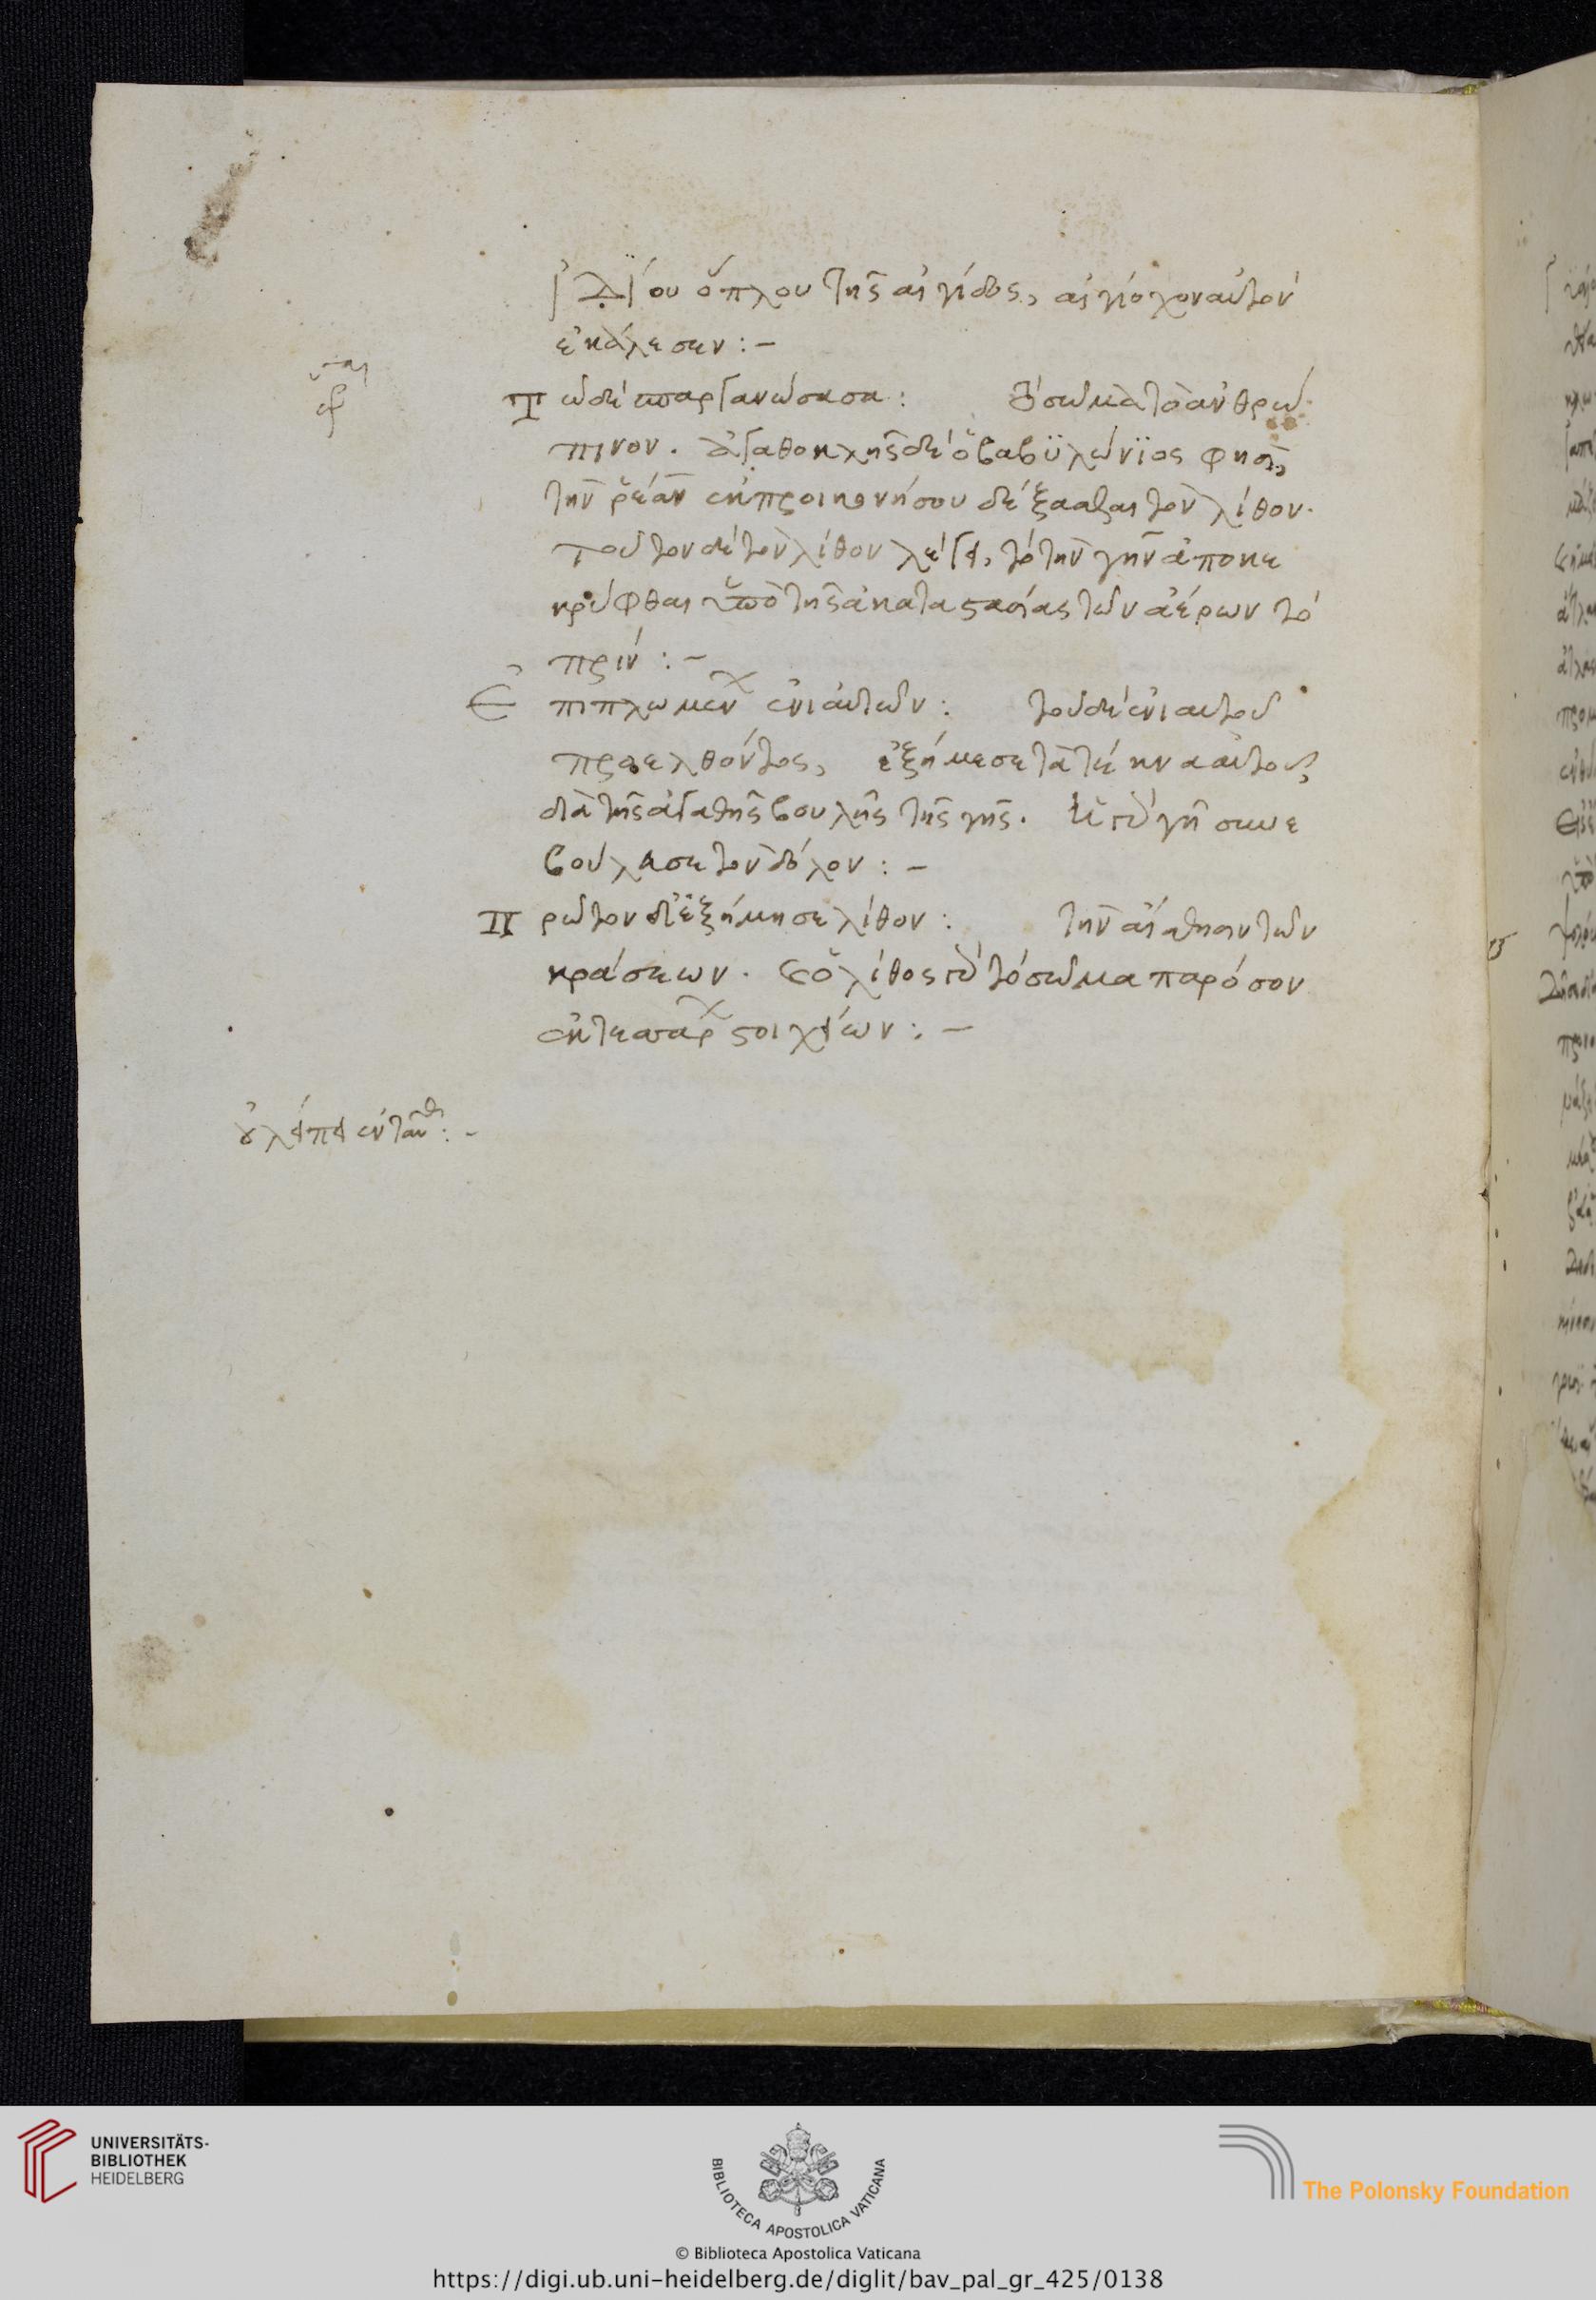 Δίου ὅπλου τῆς αἰγίδος, αἰγίοχον αὐτὸν
ἐκάλεσεν :–
Τῷ δὲ σπαργανώσασα : τὸ σῶμα τὸ ἀνθρώ
πινον. ἀγαθοκλῆς δὲ ὁ βαβϋλώνϊος φησὶ,
τὴν ῥέαν ἐκ προικονήσου δέξασθαι τὸν λίθον.
τοῦτον δὲ τὸν λίθον λέγει, τὸ τὴν γῆν ἀποκε
κρύφθαι ὑπὸ τῆς ἀκαταστασίας τῶν ἀέρων τὸ
πρίν :–
Ἐπιπλωμένων ἐνιαυτῶν : τοῦ δὲ ἐνιαυτοῦ
προελθόντος, ἐξήμεσε τὰ τέκνα αὐτοῦ,
διὰ τῆς ἀγαθῆς βουλῆς τῆς γῆς. ἡ γῆ συνε
βούλευσε τὸν δόλον :–
Πρῶτον δ' ἐξήμησε λίθον : τὴν αἴσθησιν τῶν
κράσεων. ὁ λίθος τὸ σῶμα παρόσον
ἐκ τεσσάρων στοιχείων :–
οὐ λείπει ἐνταῦθα :–
UNIVERSITÄTS-
BIBLIOTHEK
HEIDELBERG
BIBLIOTECA APOSTOLICA VATICANA
The Polonsky Foundation
© Biblioteca Apostolica Vaticana
https://digi.ub.uni-heidelberg.de/diglit/bav_pal_gr_425/0138